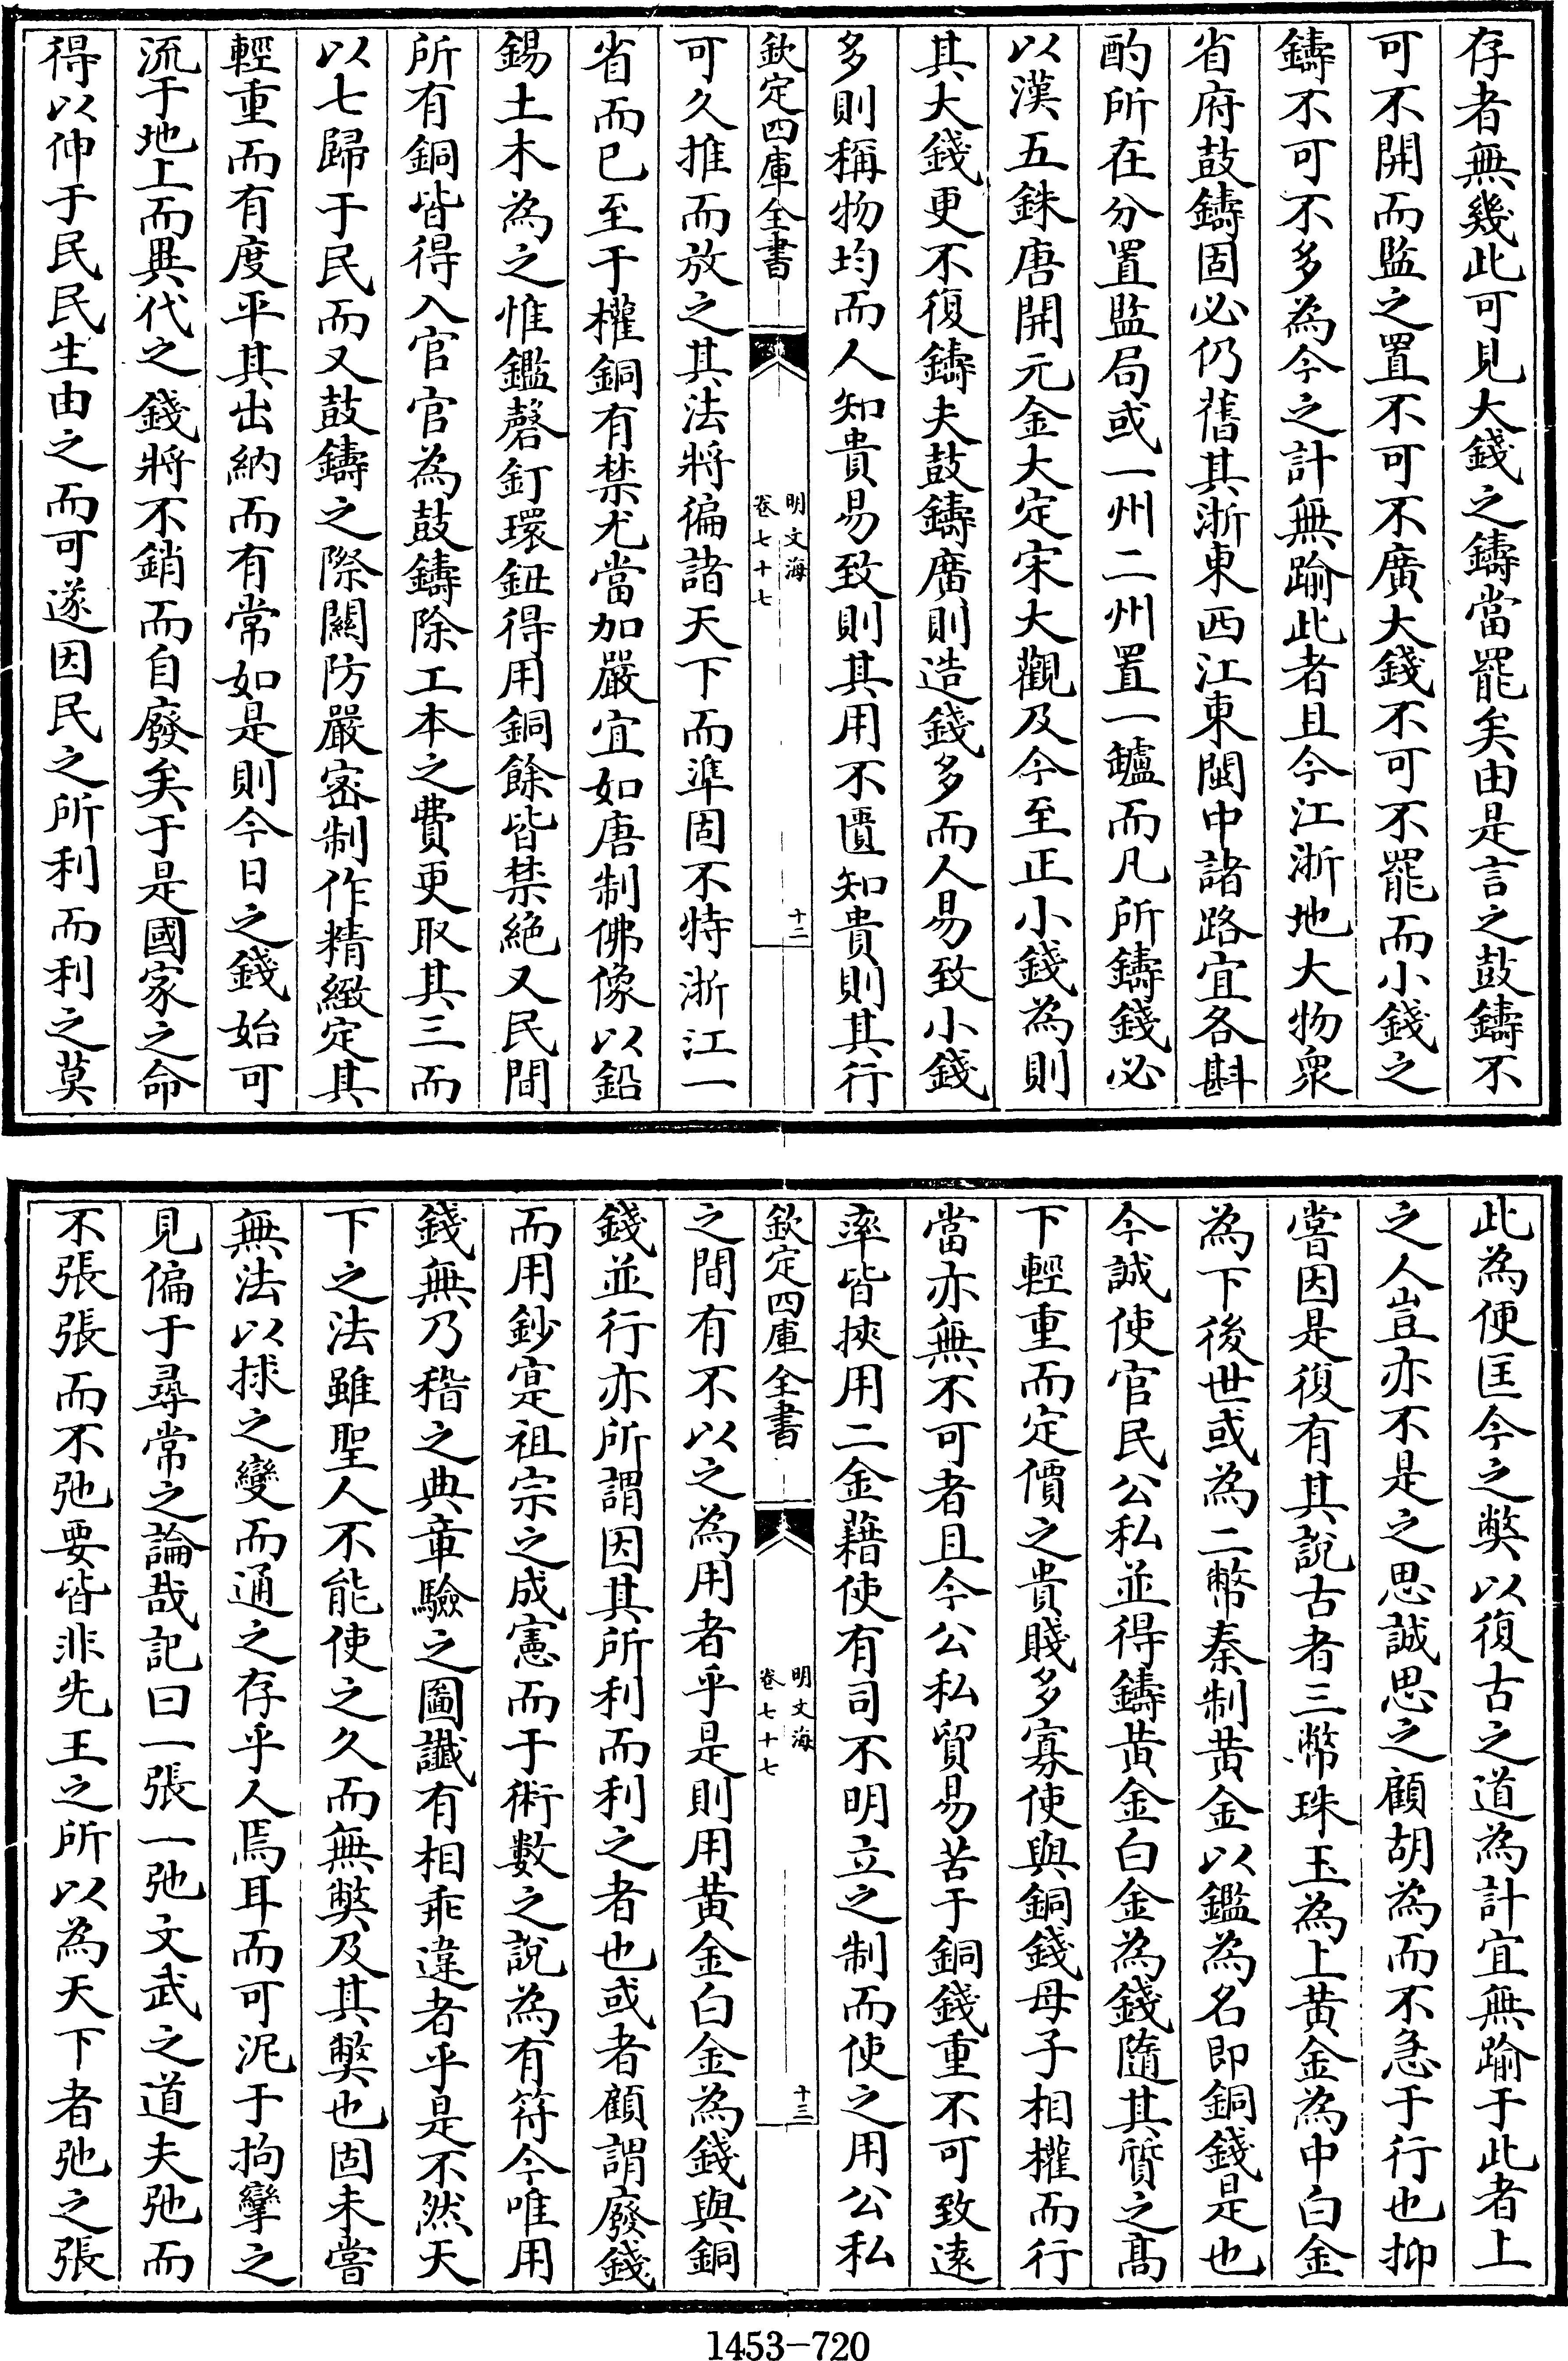 存者無幾此可見大錢之鑄當罷矣由是言之鼓鑄不
可不開而監之置不可不廣大錢不可不罷而小錢之
鑄不可不多為今之計無踰此者且今江浙地大物衆
省府鼓鑄固必仍舊其浙東西江東閩中諸路宜各斟
酌所在分置監局或一州二州置一鑪而凡所鑄錢必
以漢五銖唐開元金大定宋大觀及今至正小錢為則
其大錢更不復鑄夫鼓鑄廣則造錢多而人易致小錢
多則稱物均而人知貴易致則其用不匱知貴則其行
欽定四庫全書
明文海
卷七十七
十二
可久推而放之其法將徧諸天下而準固不特浙江一
省而已至于權銅有禁尤當加嚴宜如唐制佛像以鉛
錫土木為之惟鑑磬釘環鈕得用銅餘皆禁絶又民間
所有銅皆得入官官為鼓鑄除工本之費更取其三而
以七歸于民而又鼓鑄之際關防嚴密制作精緻定其
輕重而有度平其出納而有常如是則今日之錢始可
流于地上而異代之錢將不銷而自廢矣于是國家之命
得以伸于民民生由之而可遂因民之所利而利之莫
此為便匡今之弊以復古之道為計宜無踰于此者上
之人豈亦不是之思誠思之顧胡為而不急于行也抑
嘗因是復有其說古者三幣珠玉為上黄金為中白金
為下後世或為二幣秦制黄金以鑑為名即銅錢是也
今誠使官民公私並得鑄黄金白金為錢隨其質之髙
下輕重而定價之貴賤多寡使與銅錢母子相權而行
當亦無不可者且今公私貿易苦于銅錢重不可致逺
率皆挾用二金藉使有司不明立之制而使之用公私
欽定四庫全書
明文海
卷七十七
十三
之間有不以之為用者乎是則用黄金白金為錢與銅
錢並行亦所謂因其所利而利之者也或者顧謂廢錢
而用鈔寔祖宗之成憲而于術數之説為有符今唯用
錢無乃稽之典章驗之圖讖有相乖違者乎是不然天
下之法雖聖人不能使之久而無弊及其弊也固未嘗
無法以捄之變而通之存乎人焉耳而可泥于拘攣之
見偏于尋常之論哉記曰一張一弛文武之道夫弛而
不張張而不弛要皆非先王之所以為天下者弛之張
1453-720